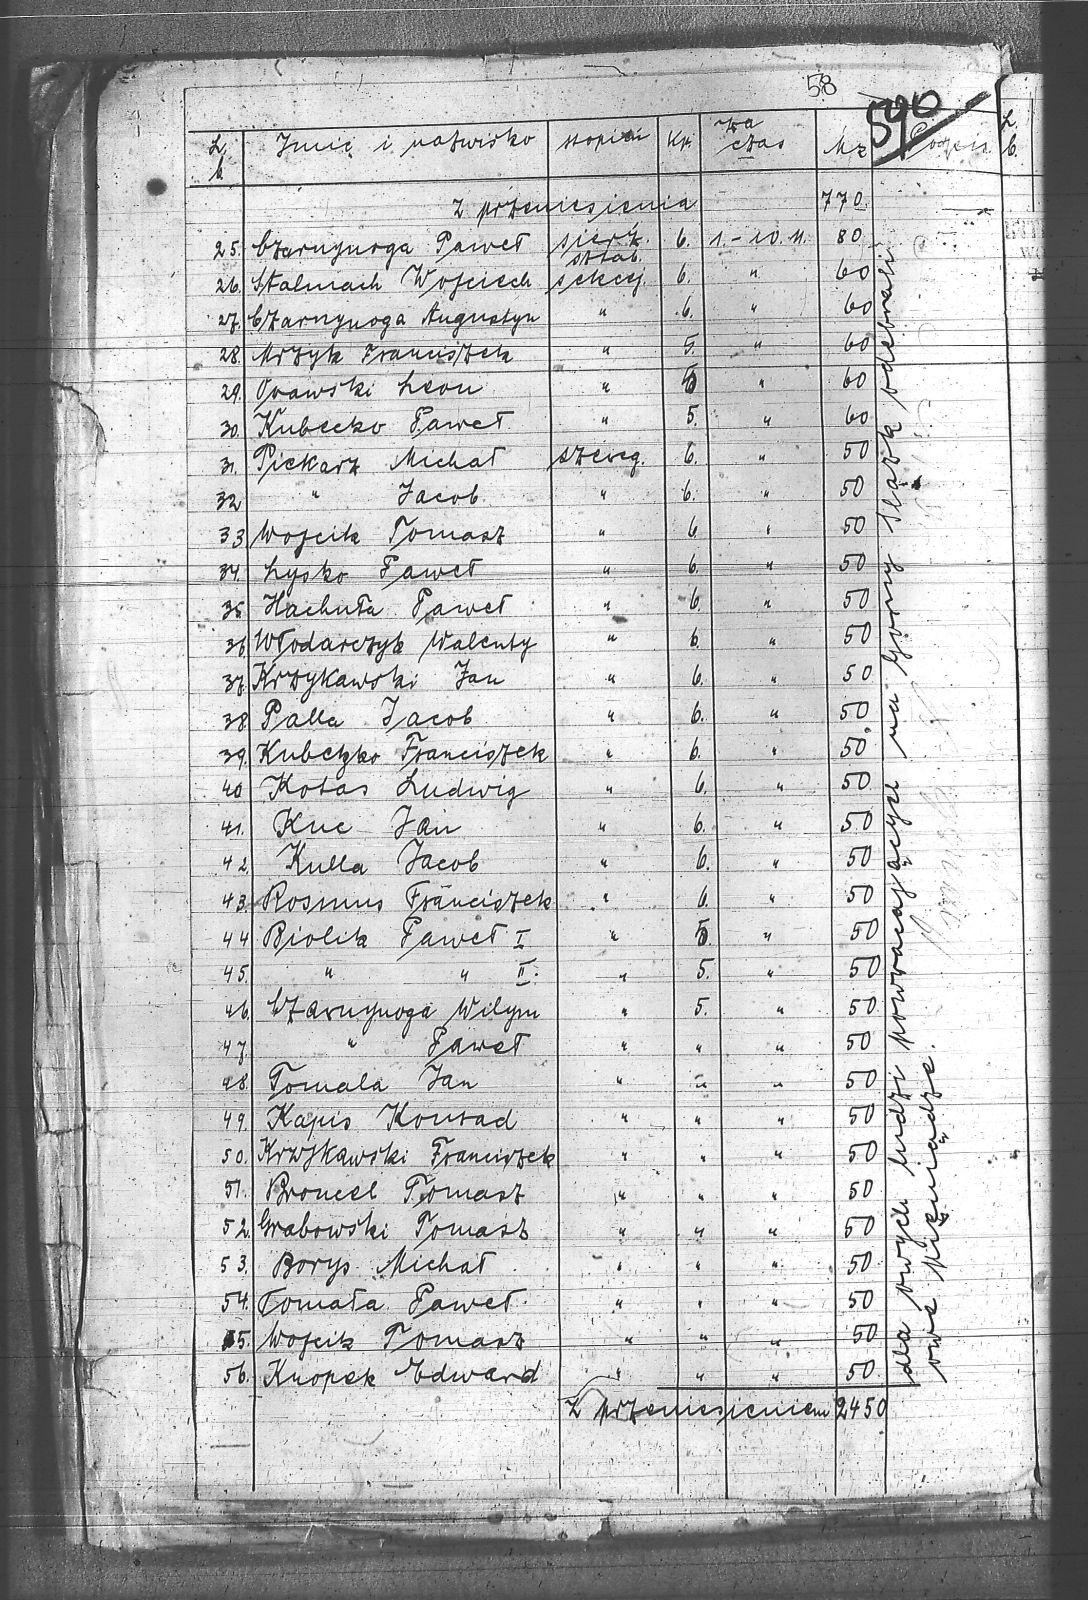 58
590
L.b. Imię i nazwisko stopień Kp. za czas Mz Podpis L.b.
Z przeniesienia 770
25. Czarnynoga Paweł sierż. sztab. 6. 1.-10.11. 80
26. Stalmach Wojciech sekcyj. 6. " 60
27. Czarnynoga Augustyn " 6. " 60
28. Mrzyk Franciszek " 5. " 60
29. Orawski Leon " 5 " 60
30. Kubecko Paweł " 5. " 60
31. Piekarz Michał szereg. 6. " 50
32 " Jacob " 6. " 50
33 Wojcik Tomasz " 6 " 50
34. Lysko Paweł " 6. " 50
35 Hachuła Paweł " 6. " 50
36 Włodarczyk Walenty " 6. " 50
37. Krzykawski Jan " 6. " 50
38 Palla Jacob " 6. " 50
39. Kubetzko Franciszek " 6. " 50
40 Kotas Ludwig " 6. " 50
41. Kuc Jan " 6. " 50
42 Kulla Jacob " 6. " 50
43 Rosmus Franciszek " 6 " 50
44 Biolik Paweł I " 5 " 50
45. " " II. " 5. " 50
46. Czarnynoga Wilym " 5. " 50
47 " Paweł " " " 50
48. Tomala Jan " " " 50
49. Kapis Konrad " " " 50
50. Krzykawski Franciszek " " " 50
51. Broncel Tomasz " " " 50
52. Grabowski Tomasz " " " 50
53. Borys Michał " " " 50
54. Tomała Paweł " " " 50
55. Wojcik Tomasz " " " 50
56. Knopek Edward " " " 50
Z przeniesieniem 2450
dla owych ludzi powracających na Górny Śląsk odebrali
owe pieniądze.